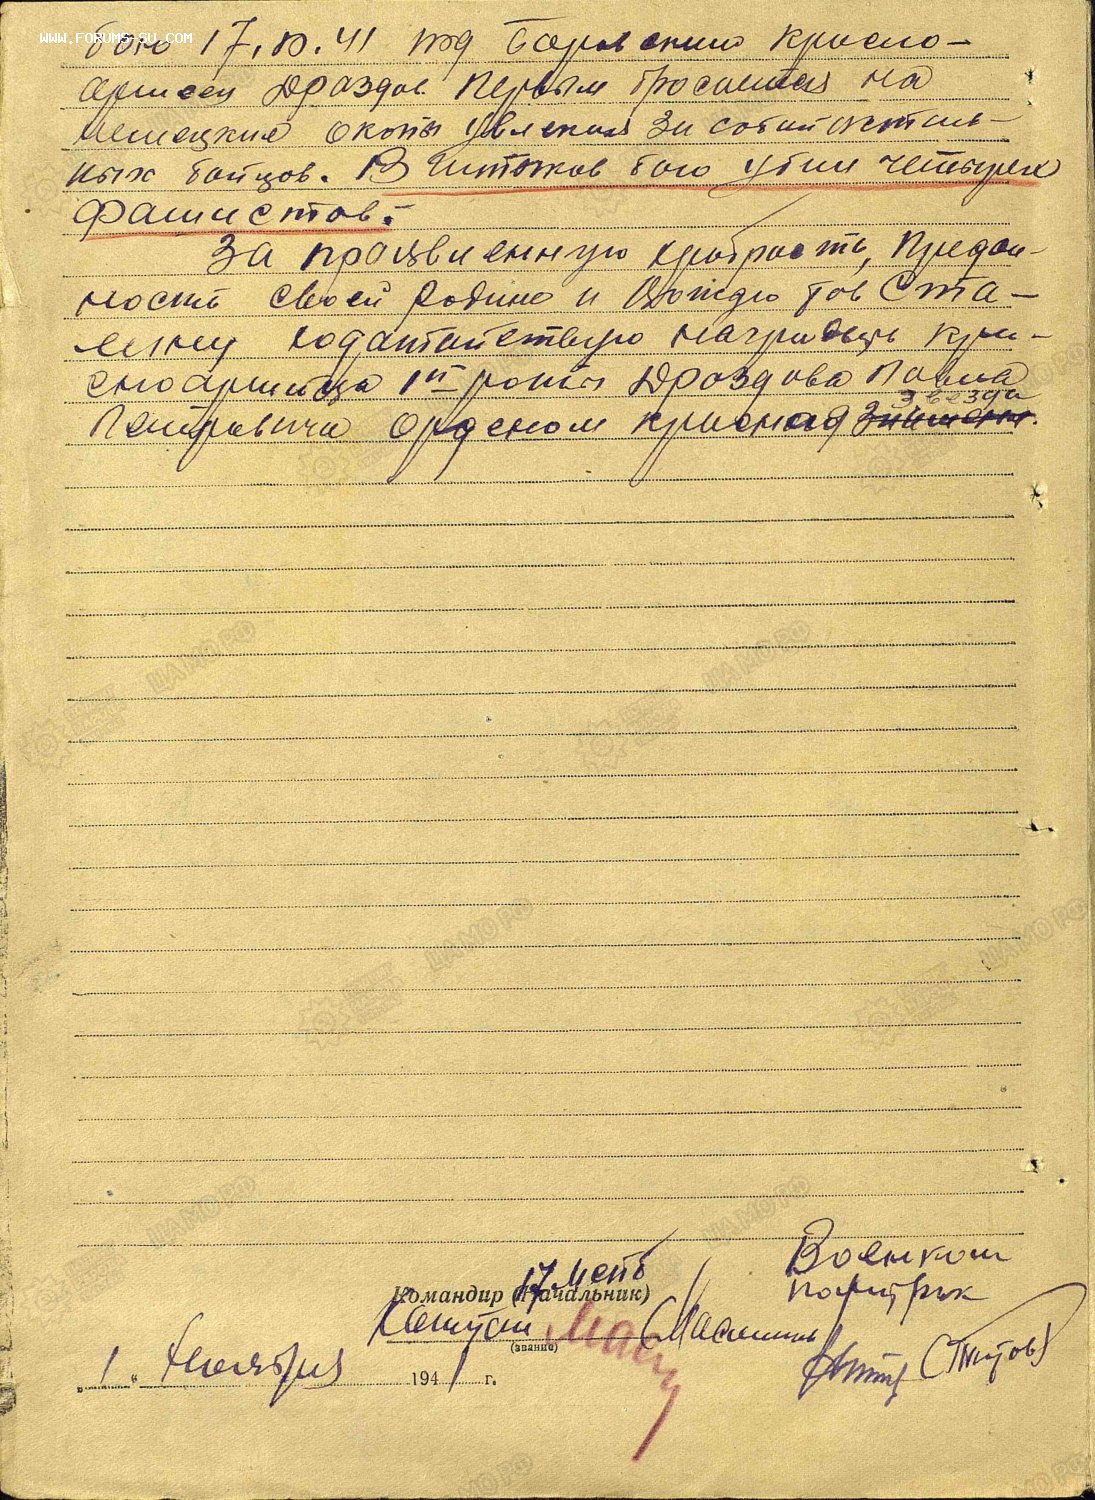 WWW.FORUMS-SU.COM
бою 17.10.41 под Боровским красно-
армеец Дроздов первым бросился на
немецкие окопы увлекая за собой осталь-
ных бойцов. В штыковом бою убил четырех
фашистов.
За проявленную храбрость, предан-
ность своей Родине и Вождю тов Ста-
лину ходатайствую наградить крас-
ноармейца 1й роты Дроздова Павла
звезда
Петровича орденом красная знамени.
Военком
17 мспб
политрук
Командир (Начальник)
Капитан
(звание)
(Титов)
„ 1 “ Ноября 1941 г.
ЦАМО РФ